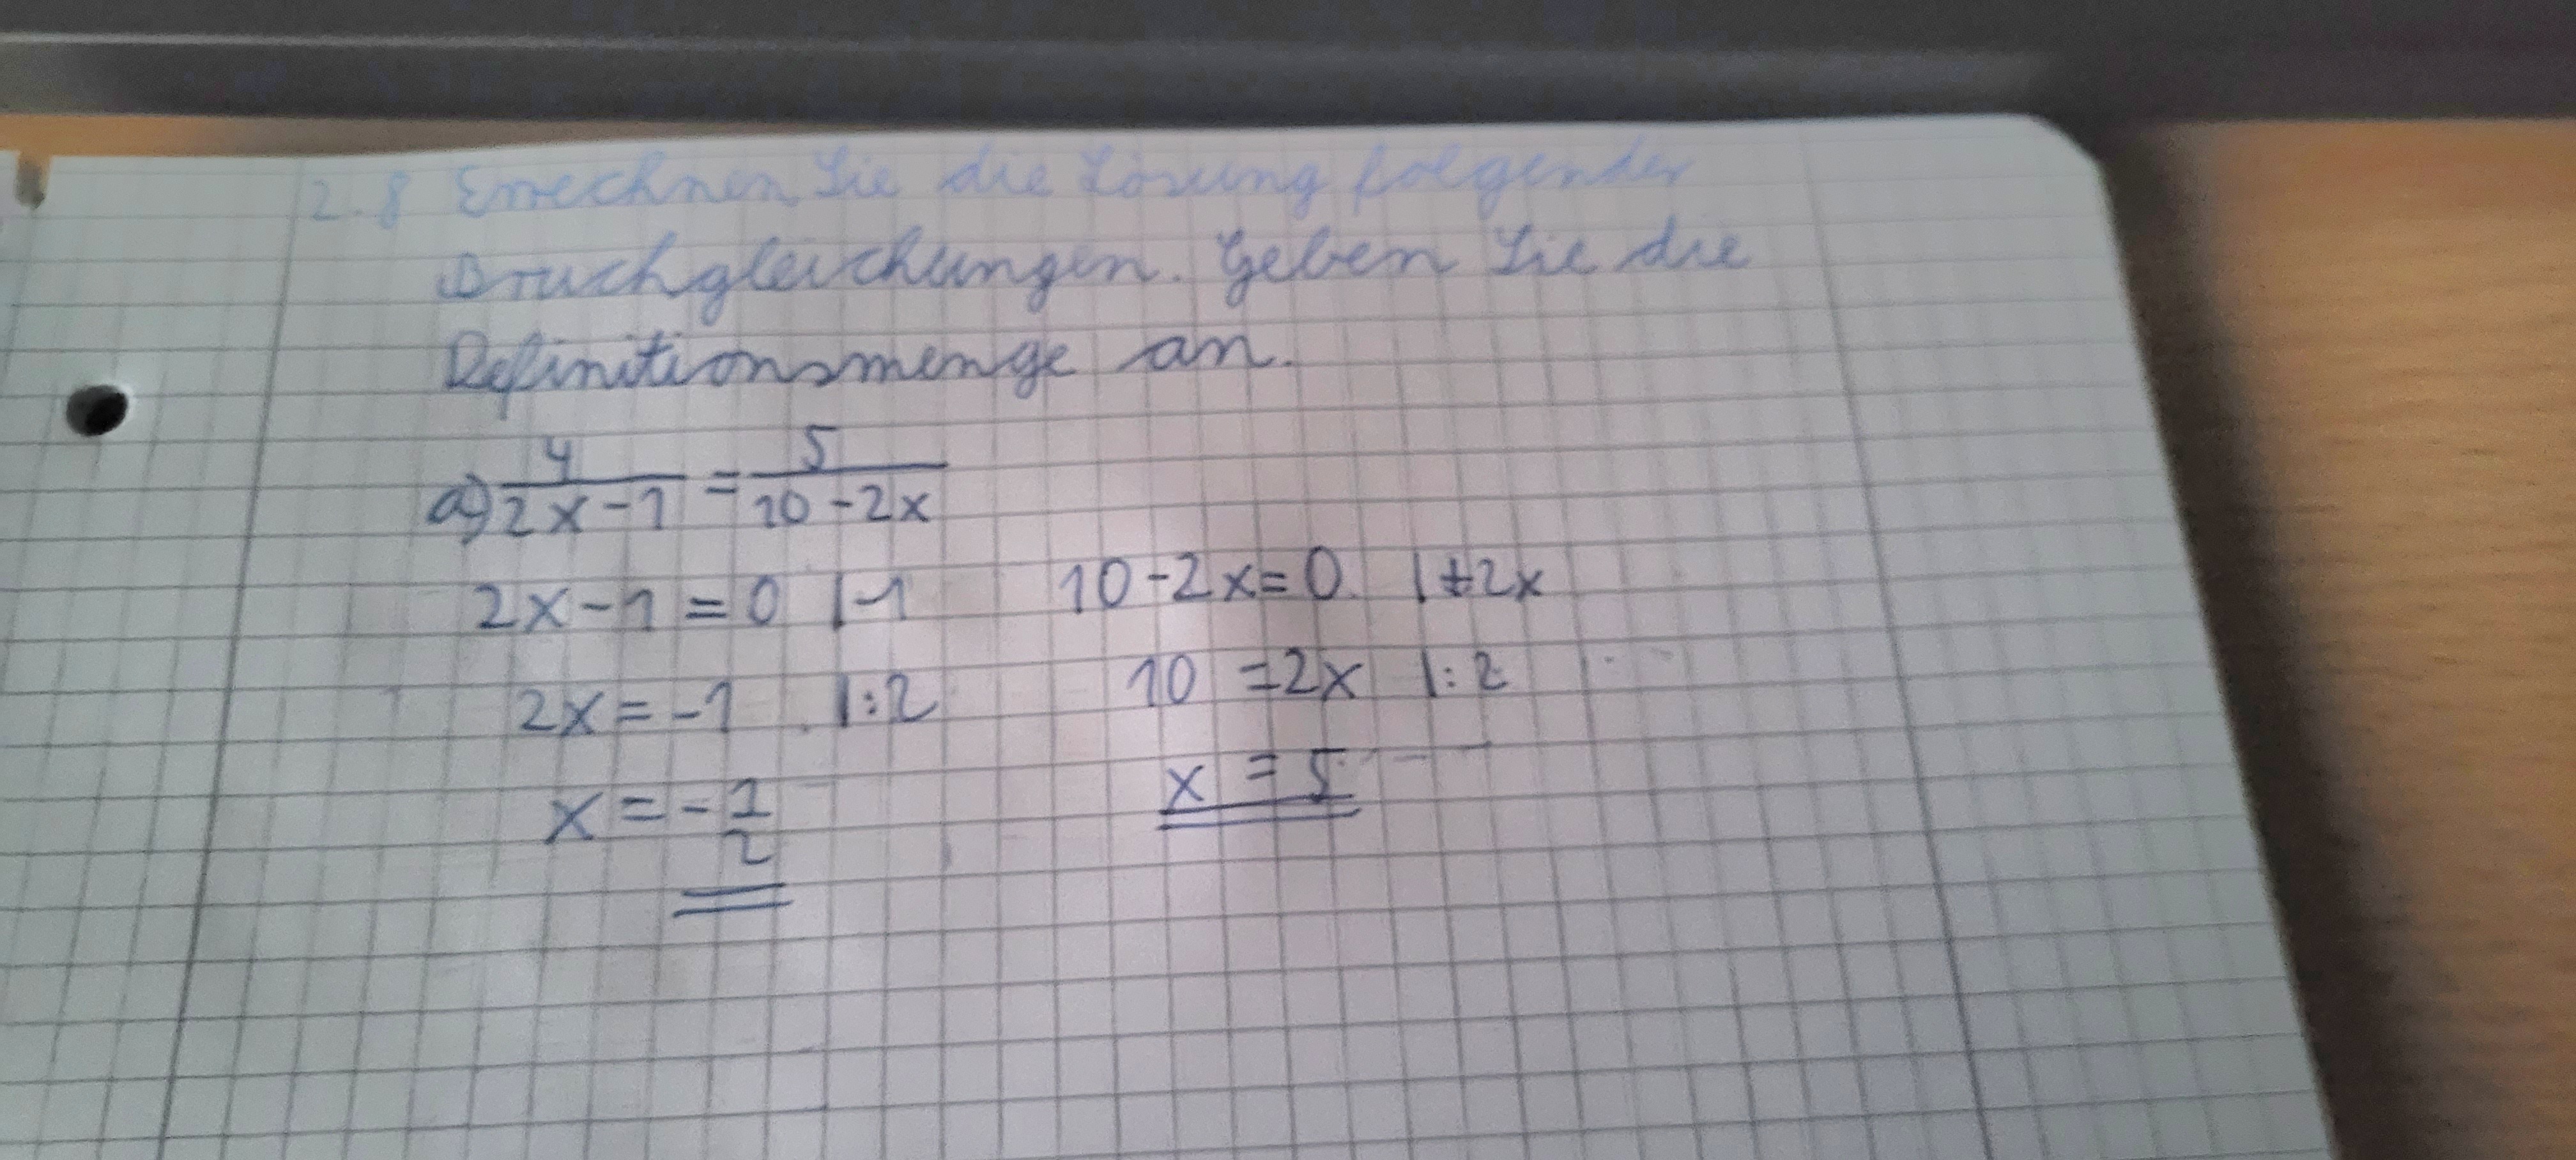 2.8 Errechnen Sie die Lösung folgender
Bruchgleichungen. Geben Sie die
Definitionsmenge an.
a) 4/(2x-1) = 5/(10-2x)
2x-1=0 |-1 10-2x=0 |+2x
2x=-1 |:2 10=2x |:2
x=-1/2 x=5